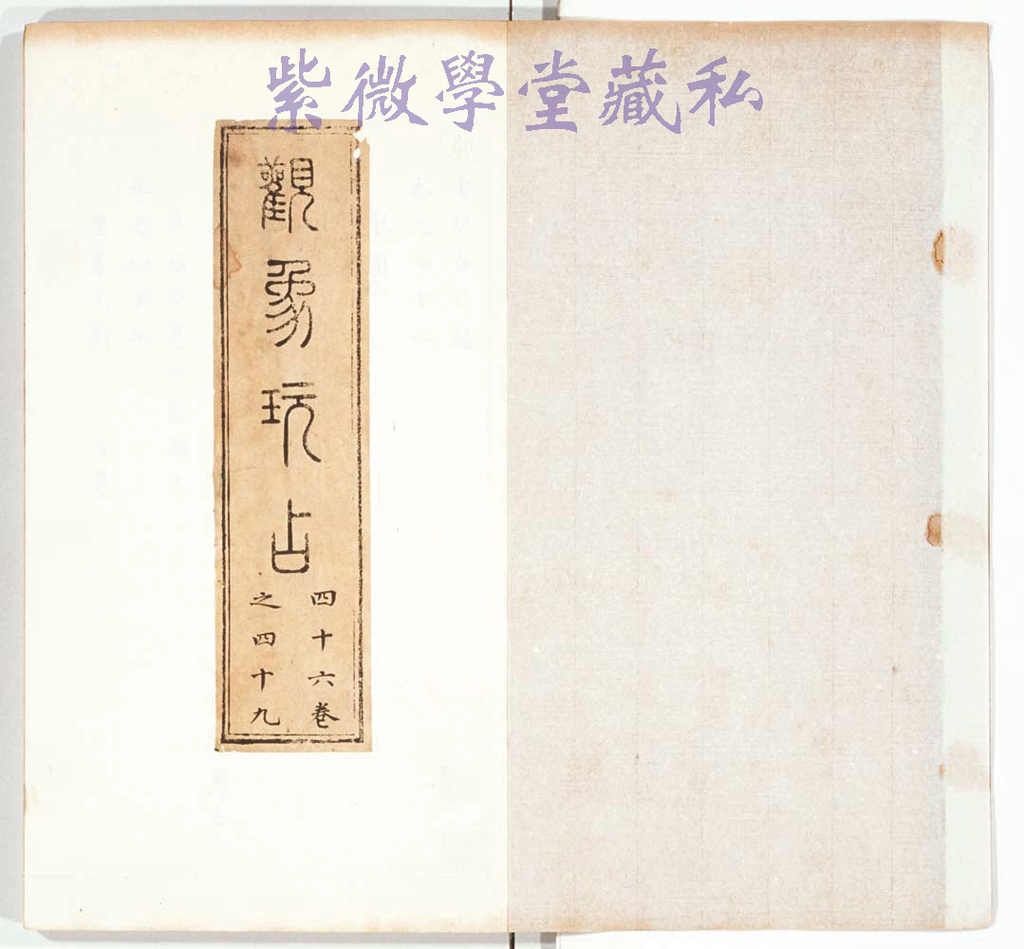 紫微學堂藏私
觀象玩占
四十六卷
之四十九